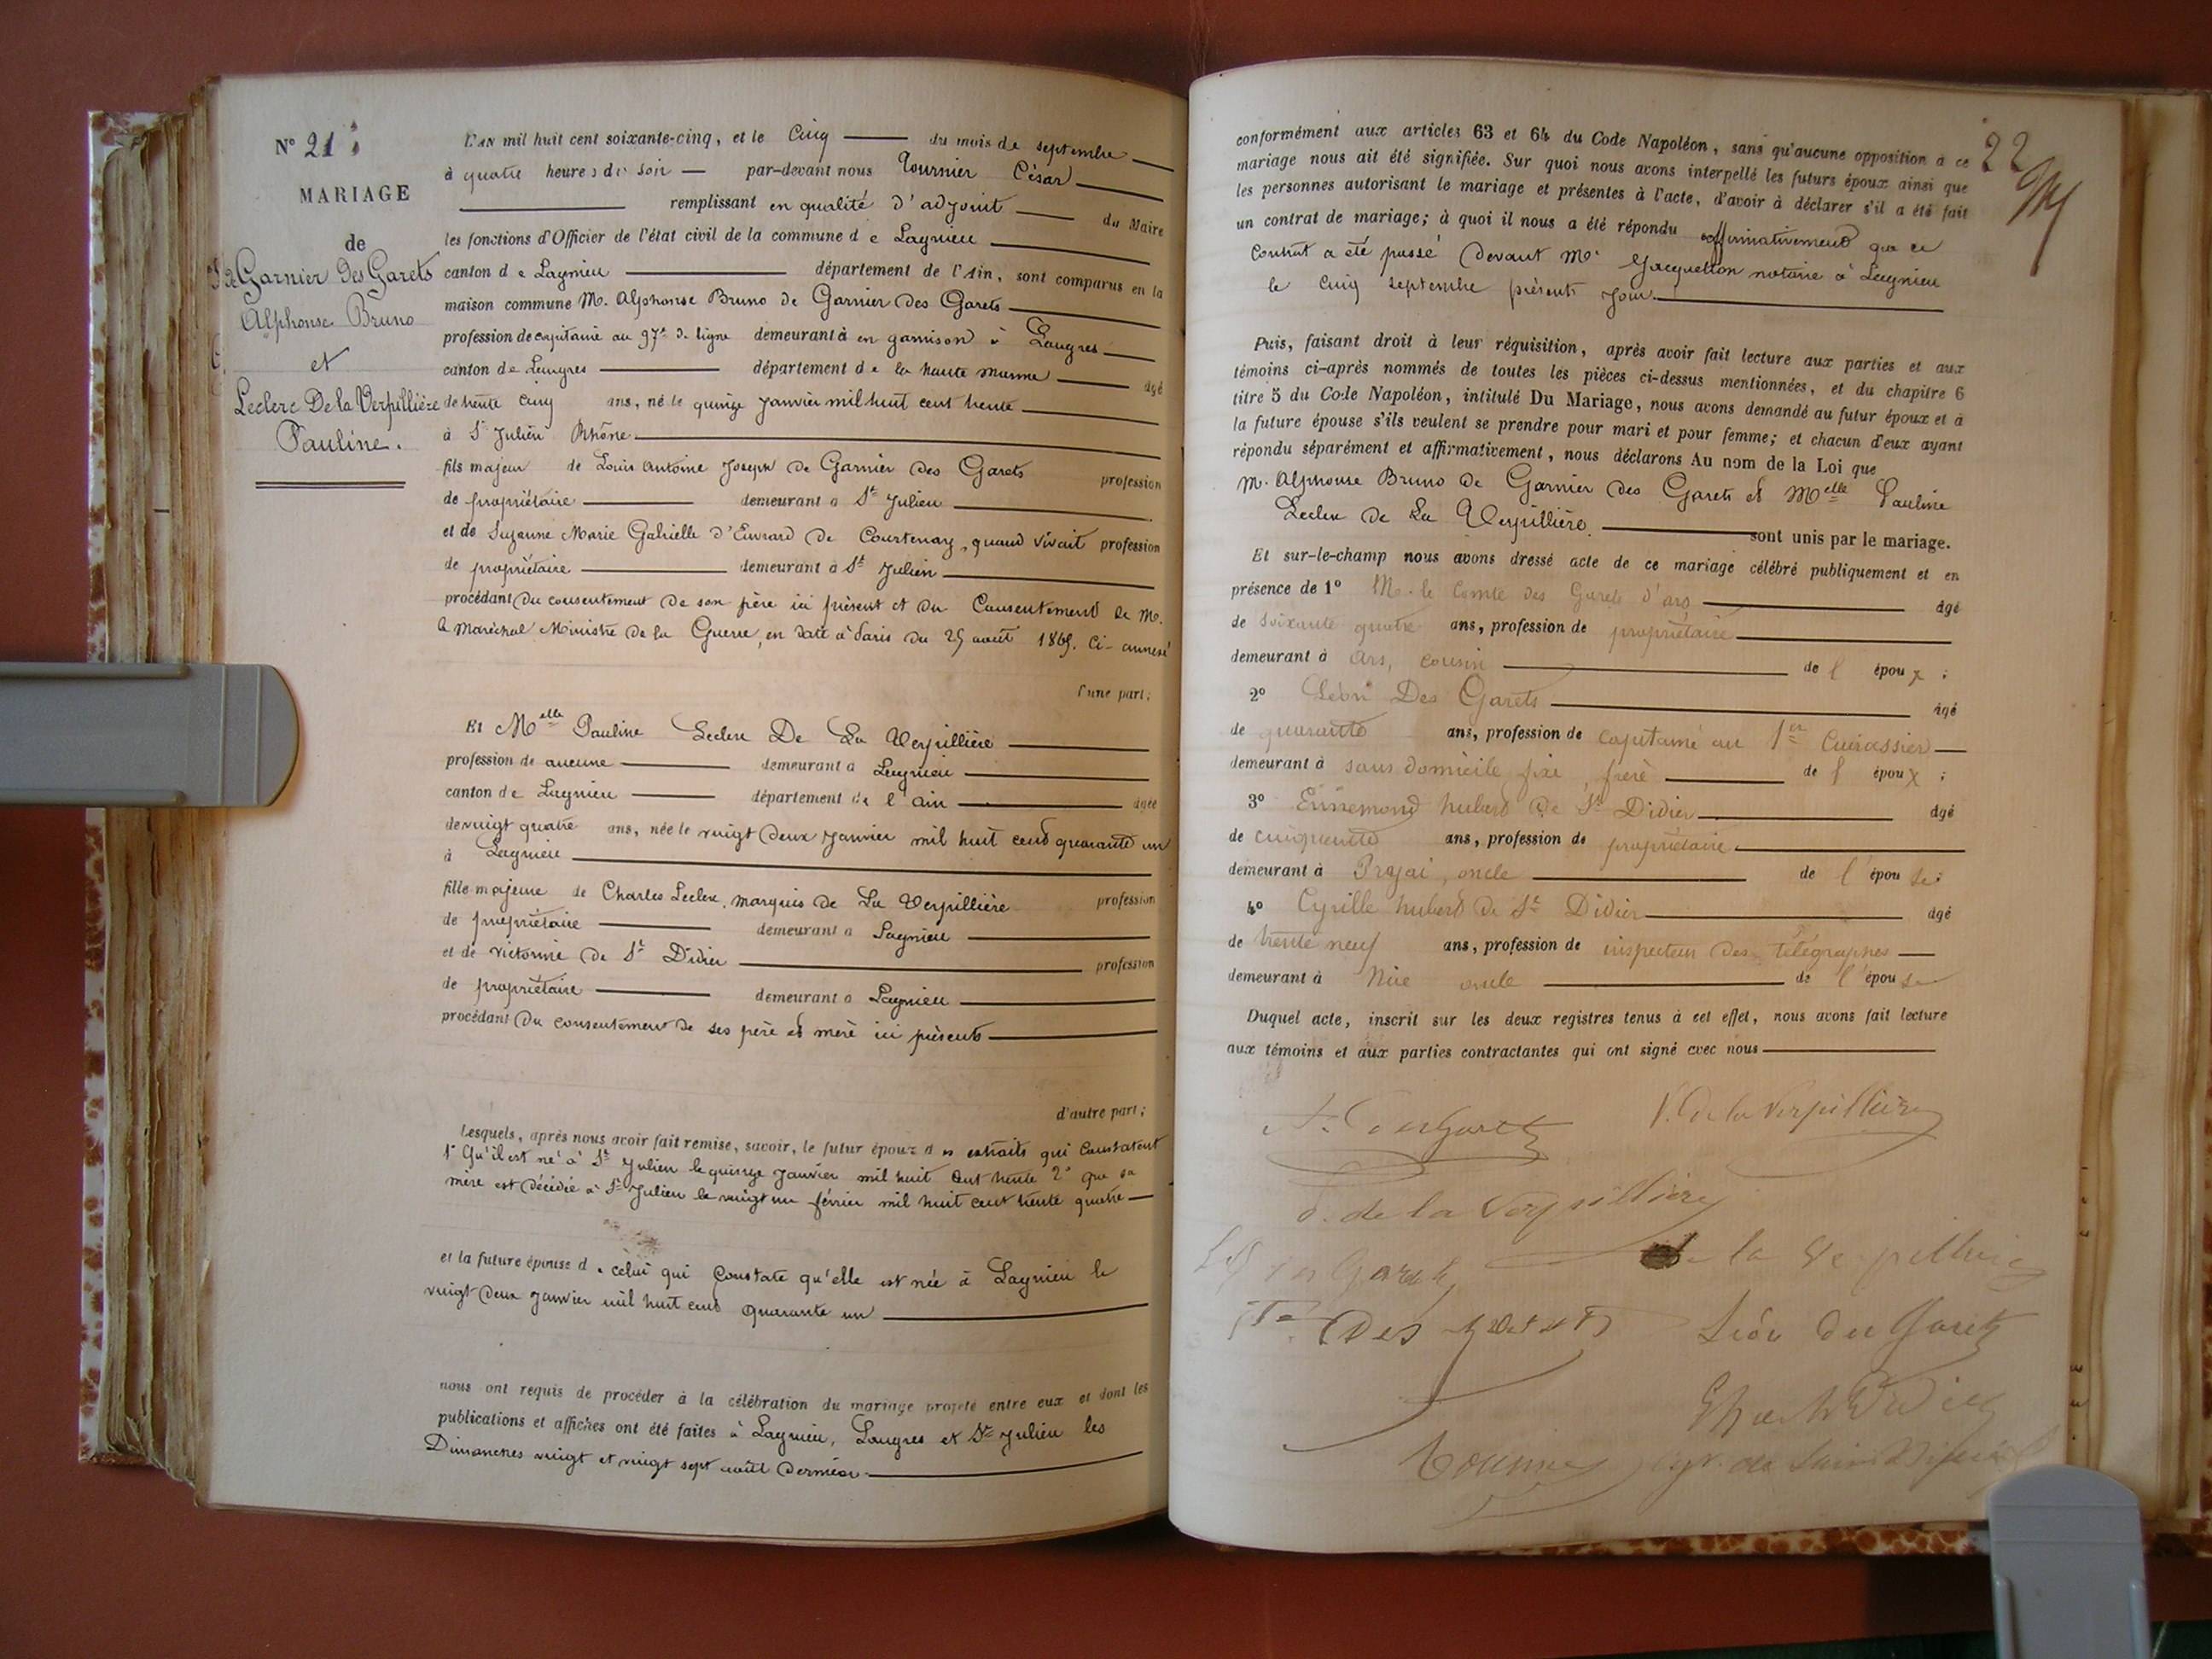 N° 21
MARIAGE
de
De Garnier Des Garets
Alphonse Bruno
et
Leclerc De la Verpillière
Pauline.
L'AN mil huit cent soixante-cinq, et le Cinq du mois de septembre
à quatre heures du soir par-devant nous Tournier César
remplissant en qualité d'adjoint du Maire
les fonctions d'Officier de l'état civil de la commune de Lagnieu
canton de Lagnieu département de l'Ain, sont comparus en la
maison commune M. Alphonse Bruno de Garnier des Garets
profession de capitaine au 97e de ligne demeurant à en garnison à Langres
canton de Langres département de la haute marne âgé
de trente cinq ans, né le quinze Janvier mil huit cent trente
à St Julien Rhône
fils majeur de Louis Antoine Joseph de Garnier des Garets profession
de propriétaire demeurant à St Julien
et de Suzanne Marie Gabrielle d'Euvrard de Courtenay, quand vivait profession
de propriétaire demeurant à St Julien
procédant du consentement de son père ici présent et du Consentement de M.
le Maréchal Ministre de la Guerre, en date à Paris du 25 août 1865. Ci-annexé
d'une part;
Et Melle Pauline Leclerc De La Verpillière
profession de aucune demeurant à Lagnieu
canton de Lagnieu département de l'ain âgée
de vingt quatre ans, née le vingt deux Janvier mil huit cent quarante un
à Lagnieu
fille majeure de Charles Leclerc, marquis de La Verpillière profession
de propriétaire demeurant à Lagnieu
et de victorine de St Didier profession
de propriétaire demeurant à Lagnieu
procédant du consentement de ses père et mère ici présents
d'autre part;
Lesquels, après nous avoir fait remise, savoir, le futur époux des extraits qui Constatent
1° Qu'il est né à St Julien le quinze Janvier mil huit Cent trente 2° que sa
mère est décédée à St Julien le vingt un février mil huit cent trente quatre
et la future épouse de celui qui Constate qu'elle est née à Lagnieu le
vingt deux janvier mil huit cent quarante un
nous ont requis de procéder à la célébration du mariage projeté entre eux et dont les
publications et affiches ont été faites à Lagnieu, Langres et St Julien les
Dimanches vingt et vingt sept août dernier.
22
conformément aux articles 63 et 64 du Code Napoléon, sans qu'aucune opposition à ce
mariage nous ait été signifiée. Sur quoi nous avons interpellé les futurs époux ainsi que
les personnes autorisant le mariage et présentes à l'acte, d'avoir à déclarer s'il a été fait
un contrat de mariage; à quoi il nous a été répondu affirmativement que ce
Contrat a été passé devant Me Jacquetton notaire à Lagnieu
le Cinq septembre présent jour.
Puis, faisant droit à leur réquisition, après avoir fait lecture aux parties et aux
témoins ci-après nommés de toutes les pièces ci-dessus mentionnées, et du chapitre 6
titre 5 du Code Napoléon, intitulé Du Mariage, nous avons demandé au futur époux et à
la future épouse s'ils veulent se prendre pour mari et pour femme; et chacun d'eux ayant
répondu séparément et affirmativement, nous déclarons Au nom de la Loi que
M. Alphonse Bruno de Garnier des Garets et Melle Pauline
Leclerc de La Verpillière sont unis par le mariage.
Et sur-le-champ nous avons dressé acte de ce mariage célébré publiquement et en
présence de 1° Mr. le Comte des Garets d'ars âgé
de soixante quatre ans, profession de propriétaire
demeurant à Ars, cousin de l'époux;
2° Léon Des Garets âgé
de quarante ans, profession de capitaine au 1er Cuirassier
demeurant à sans domicile fixe, frère de l'époux;
3° Ennemond hubert de St Didier âgé
de cinquante ans, profession de propriétaire
demeurant à oncle de l'épouse;
4° Cyrille hubert de St Didier âgé
de trente neuf ans, profession de inspecteur des télégraphes
demeurant à Nice oncle de l'épouse
Duquel acte, inscrit sur les deux registres tenus à cet effet, nous avons fait lecture
aux témoins et aux parties contractantes qui ont signé avec nous
A. Des Garets P. de la Verpillière
de la Verpillière
des Garets de la Verpillière
Cte Des Garets Léon des Garets
Tournier de Saint Didier